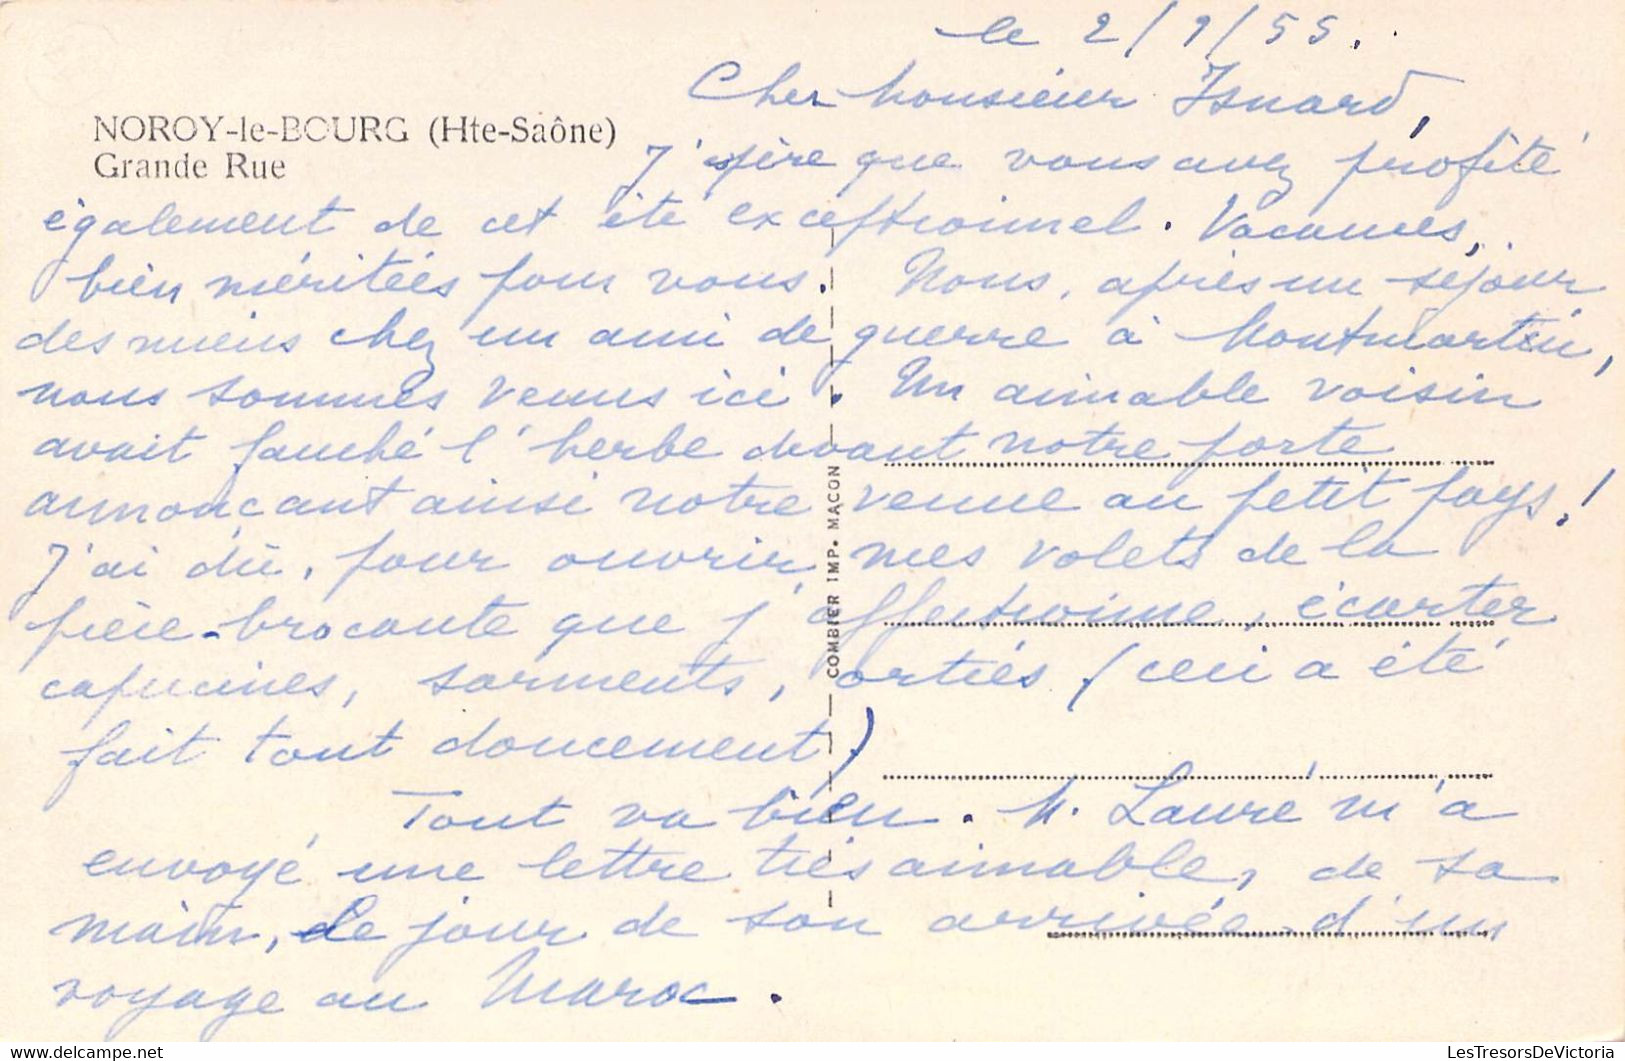 le 2/9/55.
Cher Monsieur Isnard,
NOROY-le-BOURG (Hte-Saône)
Grande Rue
J'espère que vous avez profité
également de cet été exceptionnel. Vacances,
bien méritées pour vous. Nous, après un séjour
des miens chez un ami de guerre à Montmartin,
nous sommes venus ici. Un aimable voisin
avait fauché l'herbe devant notre porte
annonçant ainsi notre venue au petit pays!
J'ai dû, pour ouvrir mes volets de la
pièce-brocante que j'affectionne, écarter
capucines, sarments, orties (ceci a été
fait tout doucement)
Tout va bien. M. Lauré m'a
envoyé une lettre très aimable, de sa
main, le jour de son arrivée d'un
voyage au Maroc.
COMBIER IMP. MACON
LesTresorsDeVictoria